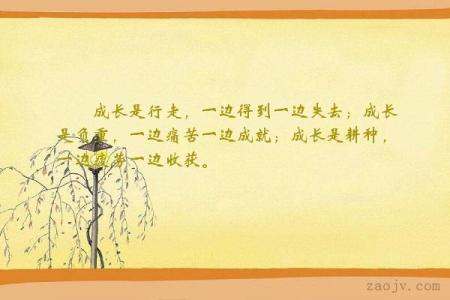 成长是行走，一边得到一边失去；成长
是负重，一边痛苦一边成就；成长是耕种，
一边疲劳一边收获。
zaojv.com